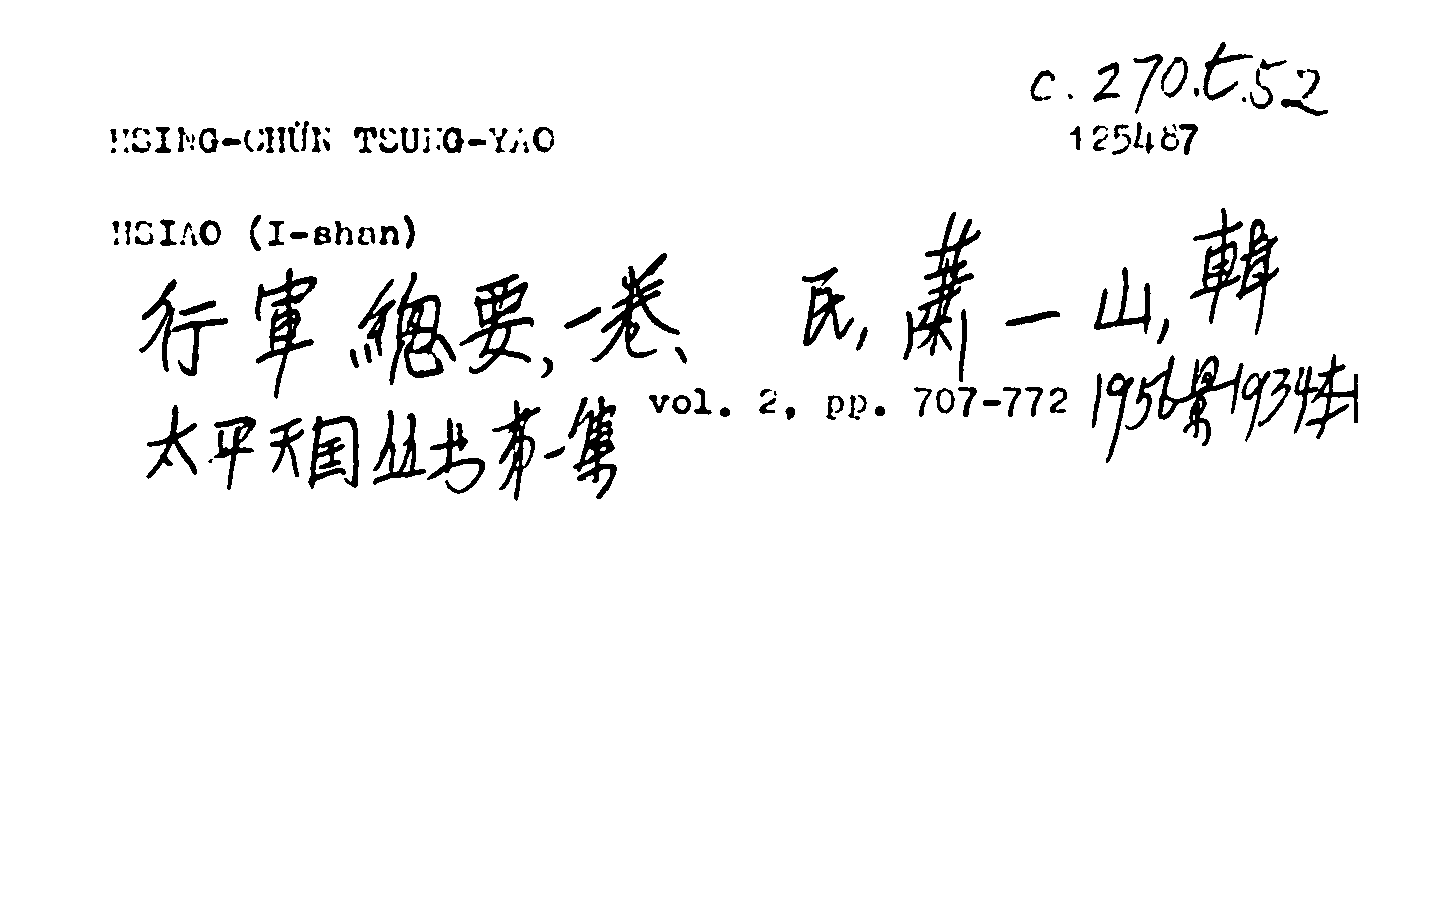 c.270.t.52
HSING-CHÜN TSUNG-YAO
125487
HSIAO (I-shan)
行軍總要,一卷、 民,蕭一山,輯
太平天国丛书第一集 vol. 2, pp. 707-772 1956景1934本